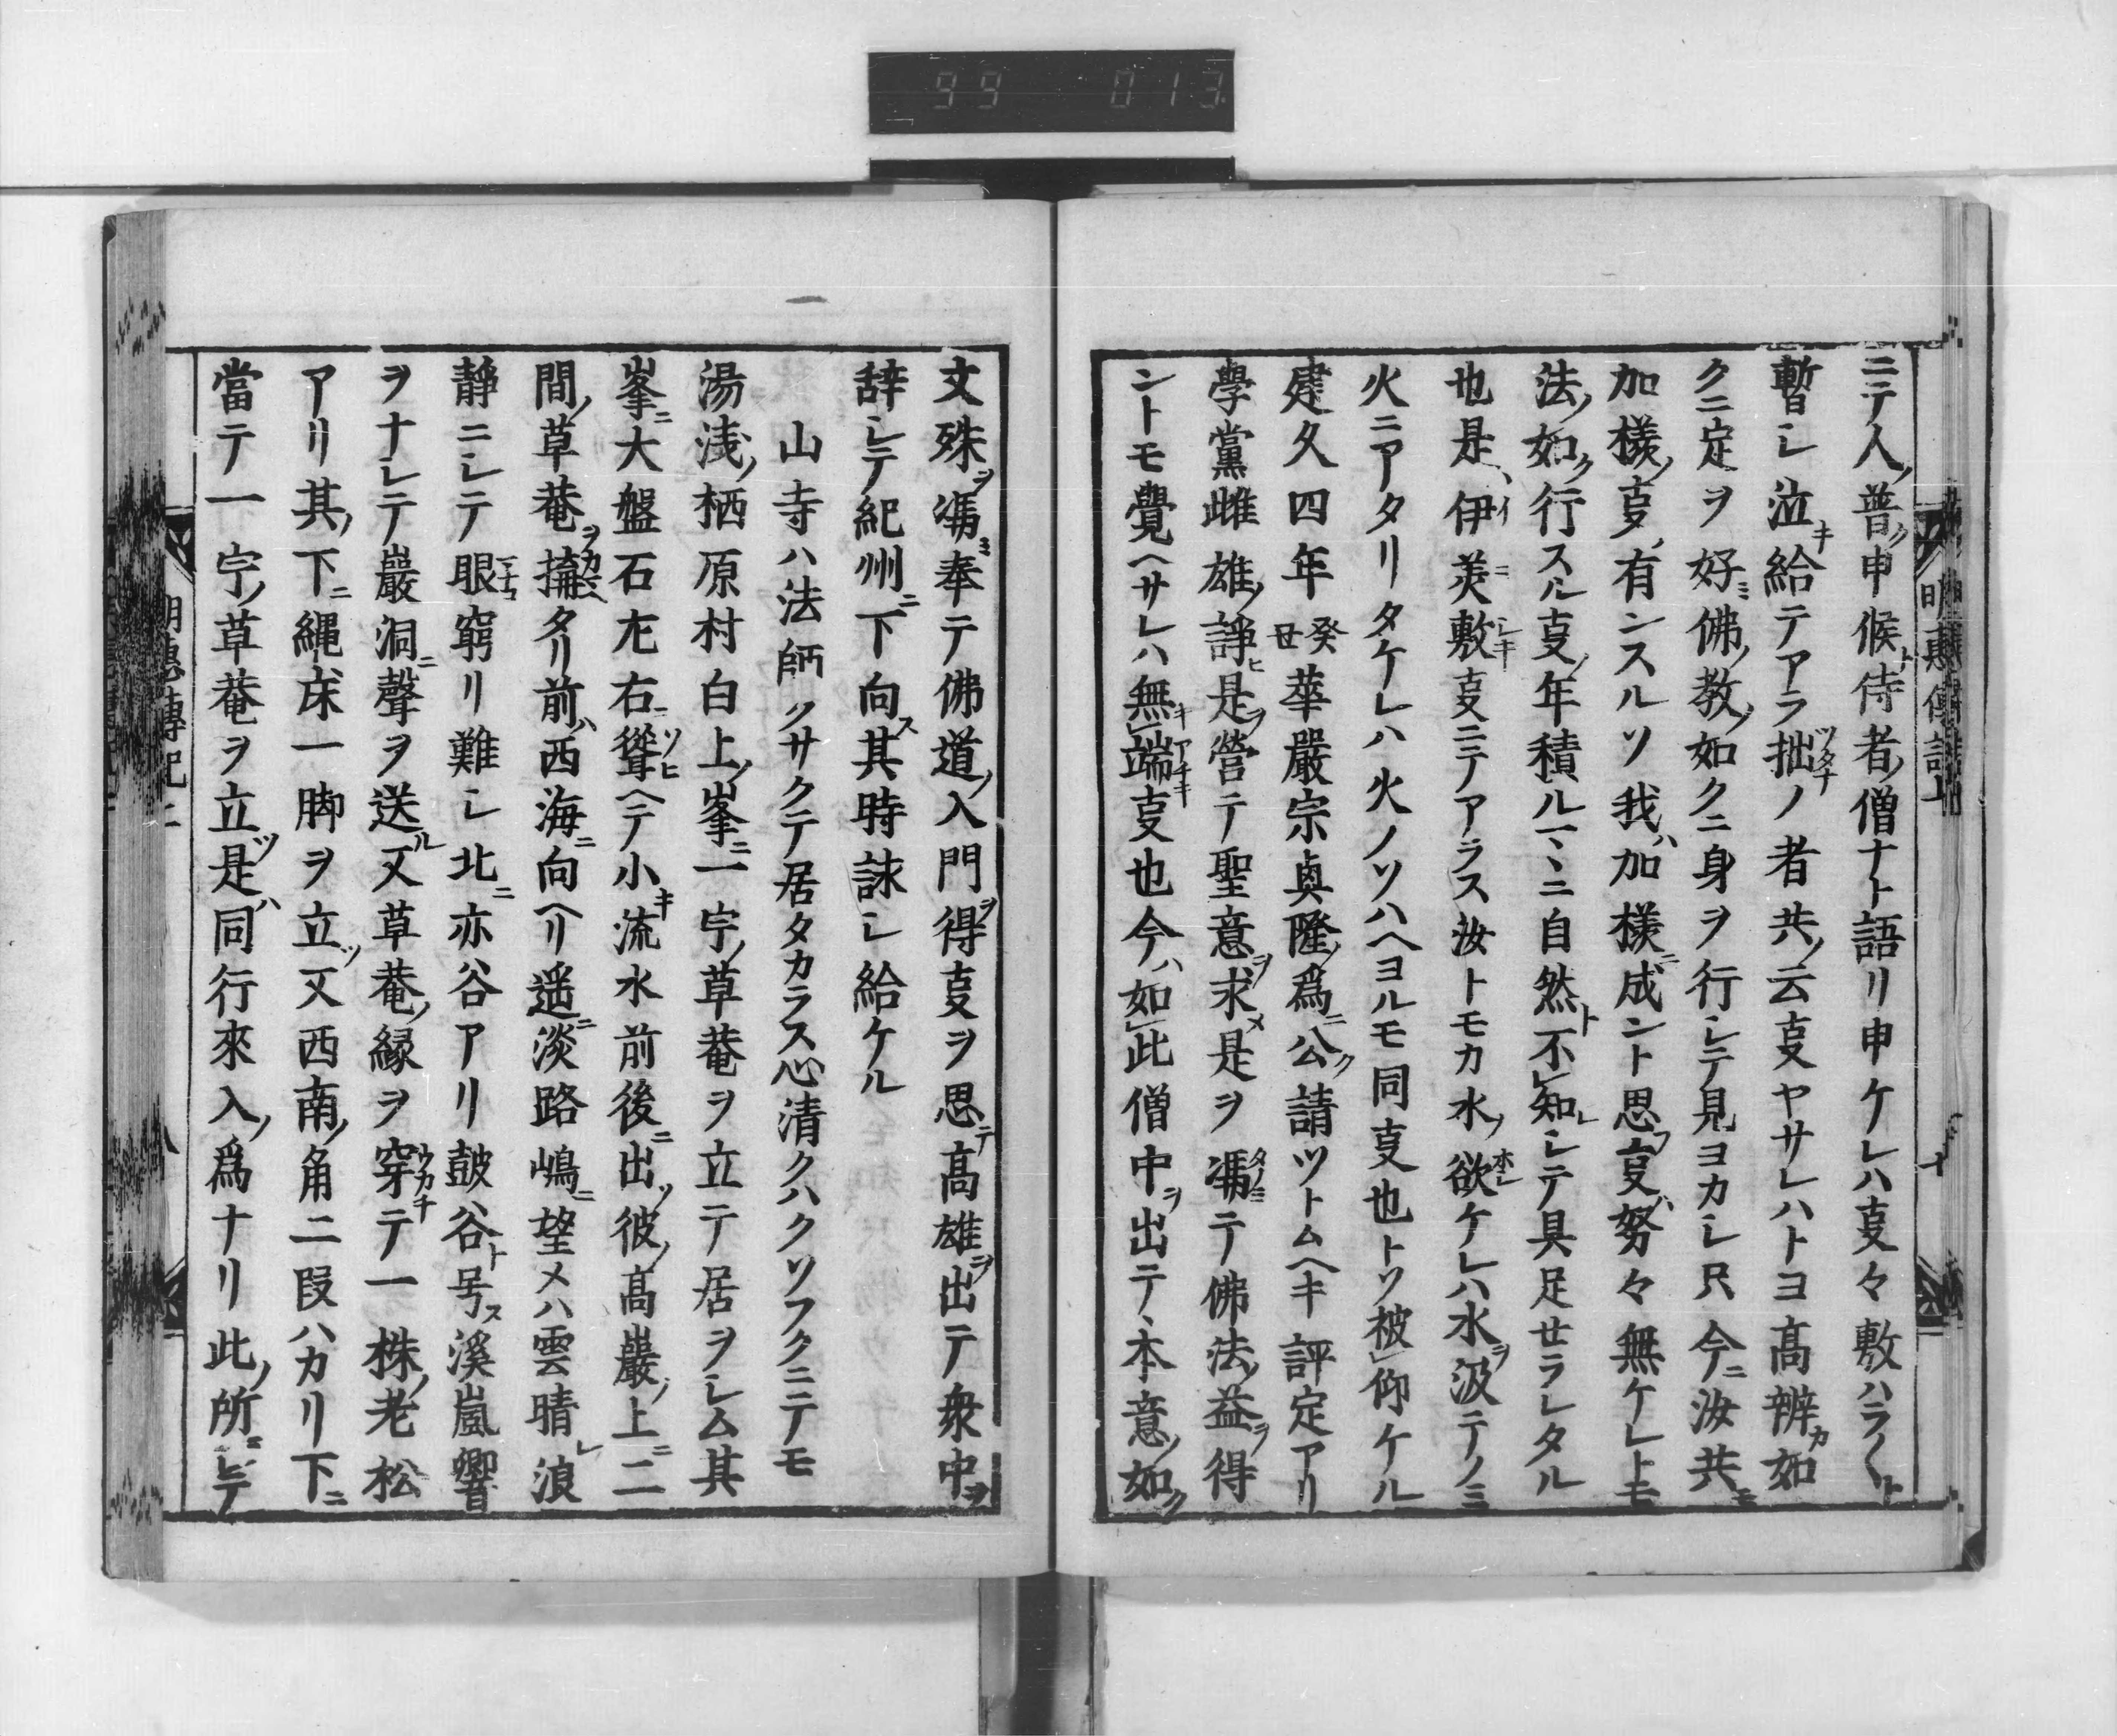 99 013
ニテ人ノ普ク申候ト侍者ノ僧ナト語リ申ケレハ叓々敷ハラ〱ト
暫シ泣キ給テアラ拙ツタナノ者共ノ云叓ヤサレハトヨ高辨カ如
クニ定ヲ好ミ佛ノ教ノ如クニ身ヲ行シテ見ヨカシ只今ニ汝共モ
加様ノ叓ハ有ンスルソ我ハ加様ニ成ント思フ叓ハ努々無ケレトモ
法ノ如ク行スル叓ノ年積ルマヽニ自然ト不知レシテ具足セラレタル
也是ハ伊イ美ニ敷シキ叓ニテアラス汝トモカ水ノ欲ホシケレハ水ヲ汲テノミ
火ニアタリタケレハ火ノソハヘヨルモ同叓也トソ被仰ケル
建久四年癸丑華嚴宗興隆ノ爲ニ公ク請ツトムヘキ評定アリ
學黨雌雄ノ諍ヒ是ヲ營テ聖意ヲ求メ是ヲ馮タノミテ佛法ノ益ヲ得
ントモ覺ヘサレハ無キ端アチキ叓也今ハ如此僧中ヲ出テヽ本意ノ如ク
文殊ヲ馮ミ奉テ佛道ノ入門ヲ得叓ヲ思テ高雄ヲ出テ衆中ヲ
辞シテ紀州ニ下向ス其時詠シ給ケル
山寺ハ法師クサクテ居タカラス心清クハクソフクニテモ
湯浅ノ栖原村白上ノ峯ニ一宇ノ草菴ヲ立テ居ヲシム其
峯ニ大盤石左右ニ聳ソヒヘテ小キ流水前後ニ出ツ彼ノ高巖ノ上ニ二
間ノ草菴ヲ搆カマヘタリ前ハ西海ニ向ヘリ遥ニ淡路嶋ニ望メハ雲晴レ浪
靜ニシテ眼マナコ窮リ難シ北ニ亦谷アリ鼓谷ト号ス溪嵐響
ヲナシテ巖洞ニ聲ヲ送ル又草菴ノ縁ヲ穿ウカチテ一株ノ老松
アリ其ノ下ニ縄床一脚ヲ立ツ又西南ノ角二段ハカリ下ニ
當テ一宇ノ草菴ヲ立ツ是ハ同行來入ノ爲ナリ此ノ所ニシテ
明惠傳記二